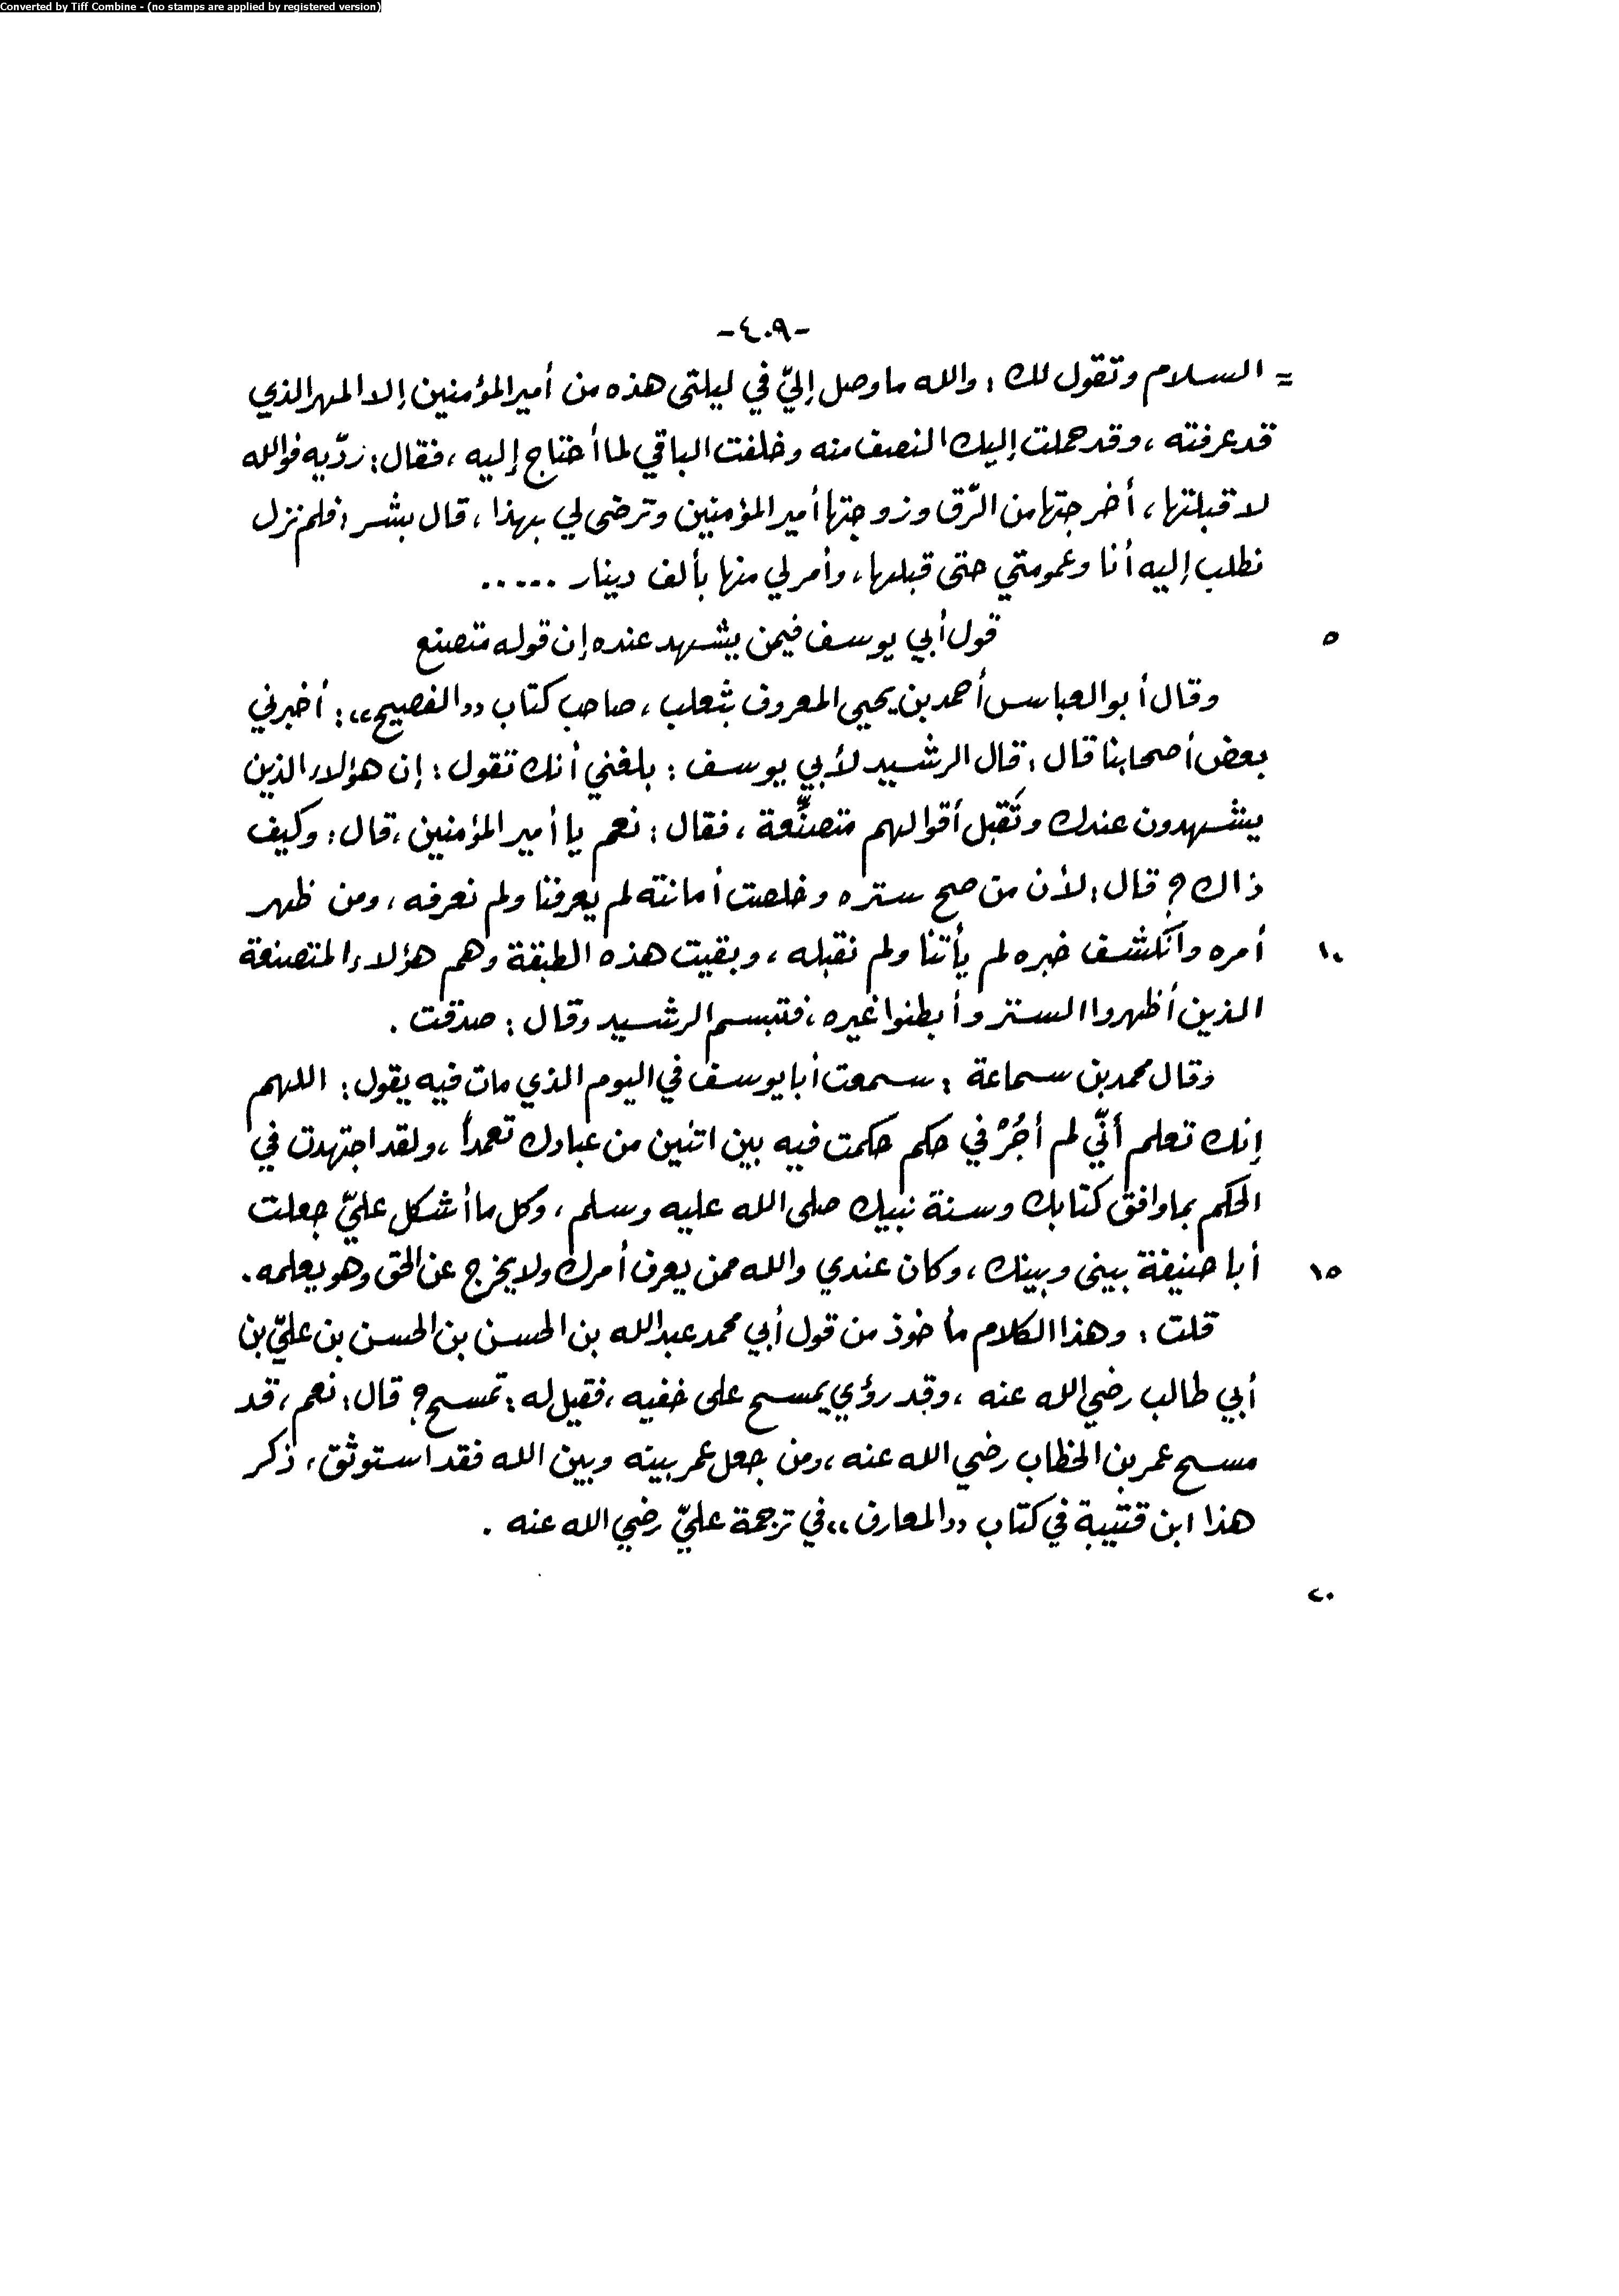 Converted by Tiff Combine - (no stamps are applied by registered version)
-٤٠٩-
= السلام وتقول لك : والله ما وصل إليّ في ليلتى هذه من أمير المؤمنين إلا المهر الذي
قد عرفته ، وقد حملت إليك النصف منه وخلفت الباقي لما أحتاج إليه ، فقال : ردّيه فوالله
لا قبلتها ، أخرجتها من الرّق وزوجتها أمير المؤمنين وترضى لي بهذا ، قال بشر : فلم نزل
نطلب إليه أنا وعمومتي حتى قبلها ، وأمر لي منها بألف دينار .....
٥ قول أبي يوسف فيمن يشهد عنده إن قوله متصنع
وقال أبو العباس أحمد بن يحيى المعروف بثعلب ، صاحب كتاب «الفصيح» : أخبرني
بعض أصحابنا قال : قال الرشيد لأبي يوسف : بلغني أنك تقول : إن هؤلاء الذين
يشهدون عندك وتَقبل أقوالهم متصنِّعة ، فقال : نعم يا أمير المؤمنين ، قال : وكيف
ذاك ؟ قال : لأن من صح ستره وخلصت أمانته لم يعرفنا ولم نعرفه ، ومن ظهر
١٠ أمره وانكشف خبره لم يأتنا ولم نقبله ، وبقيت هذه الطبقة وهم هؤلاء المتصنعة
الذين أظهروا الستر وأبطنوا غيره ، فتبسم الرشيد وقال : صدقت .
وقال محمد بن سماعة : سمعت أبا يوسف في اليوم الذي مات فيه يقول : اللهم
إنك تعلم أنّي لم أجُرْ في حكم حكمت فيه بين اثنين من عبادك تعمداً ، ولقد اجتهدت في
الحكم بما وافق كتابك وسنة نبيك صلى الله عليه وسلم ، وكل ما أشكل عليّ جعلت
١٥ أبا حنيفة بينى وبينك ، وكان عندي والله ممن يعرف أمرك ولا يخرج عن الحق وهو يعلمه .
قلت : وهذا الكلام مأخوذ من قول أبي محمد عبد الله بن الحسن بن الحسن بن عليّ بن
أبي طالب رضي الله عنه ، وقد رؤي يمسح على خفيه ، فقيل له : تمسح ؟ قال : نعم ، قد
مسح عمر بن الخطاب رضي الله عنه ، ومن جعل عمر بينه وبين الله فقد استوثق ، ذكر
هذا ابن قتيبة في كتاب «المعارف» في ترجمة عليّ رضي الله عنه .
٢٠